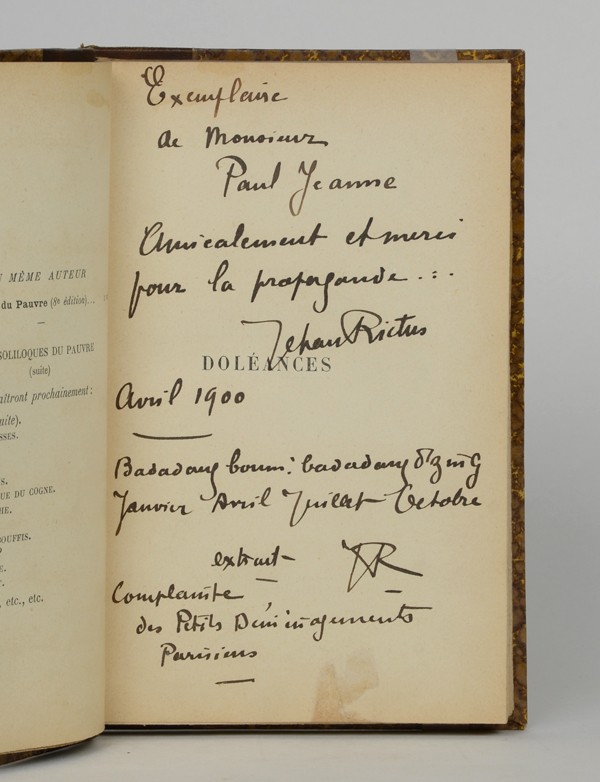 U MÊME AUTEUR
du Pauvre (8e édition)...
SOLILOQUES DU PAUVRE
(suite)
aîtront prochainement :
uite).
SSES.
S.
QUE DU COGNE.
HE.
BOUFFIS.
E.
, etc., etc.
Exemplaire
de Monsieur
Paul Jeanne
Amicalement et merci
pour la propagande . : .
Jehan Rictus
DOLÉANCES
Avril 1900
Badadang boum : badadang dzing
Janvier Avril Juillet Octobre
extrait JR
Complainte
des Petits Déménagements
Parisiens